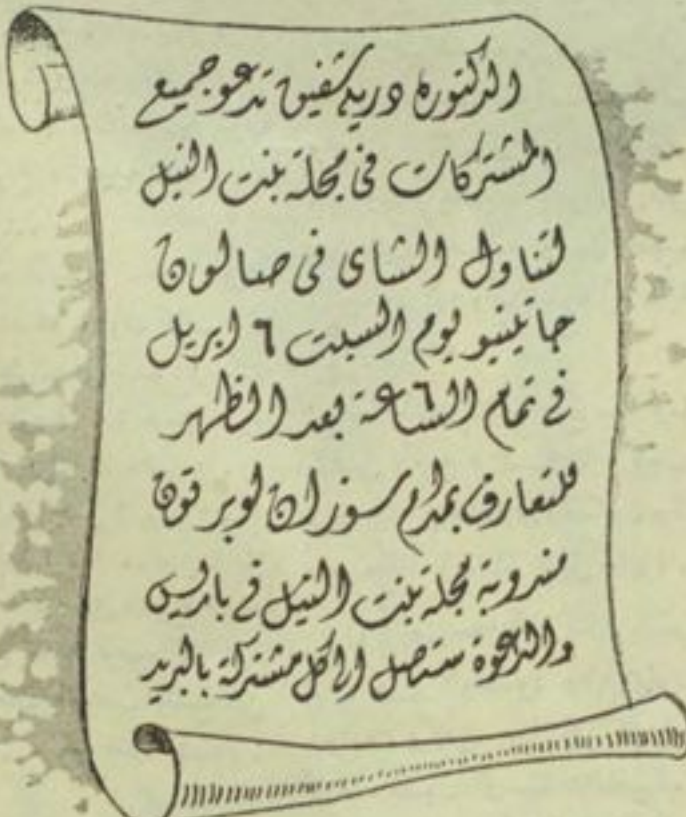 الدكتورة درية شفيق تدعو جميع
المشتركات فى مجلة بنت النيل
لتناول الشاى فى صالون
جاتينيو يوم السبت ٦ ابريل
فى تمام الساعة ٦ بعد الظهر
للتعارف بمدام سوزان لوبرتون
مندوبة مجلة بنت النيل فى باريس
والدعوة ستصل الى كل مشتركة بالبريد